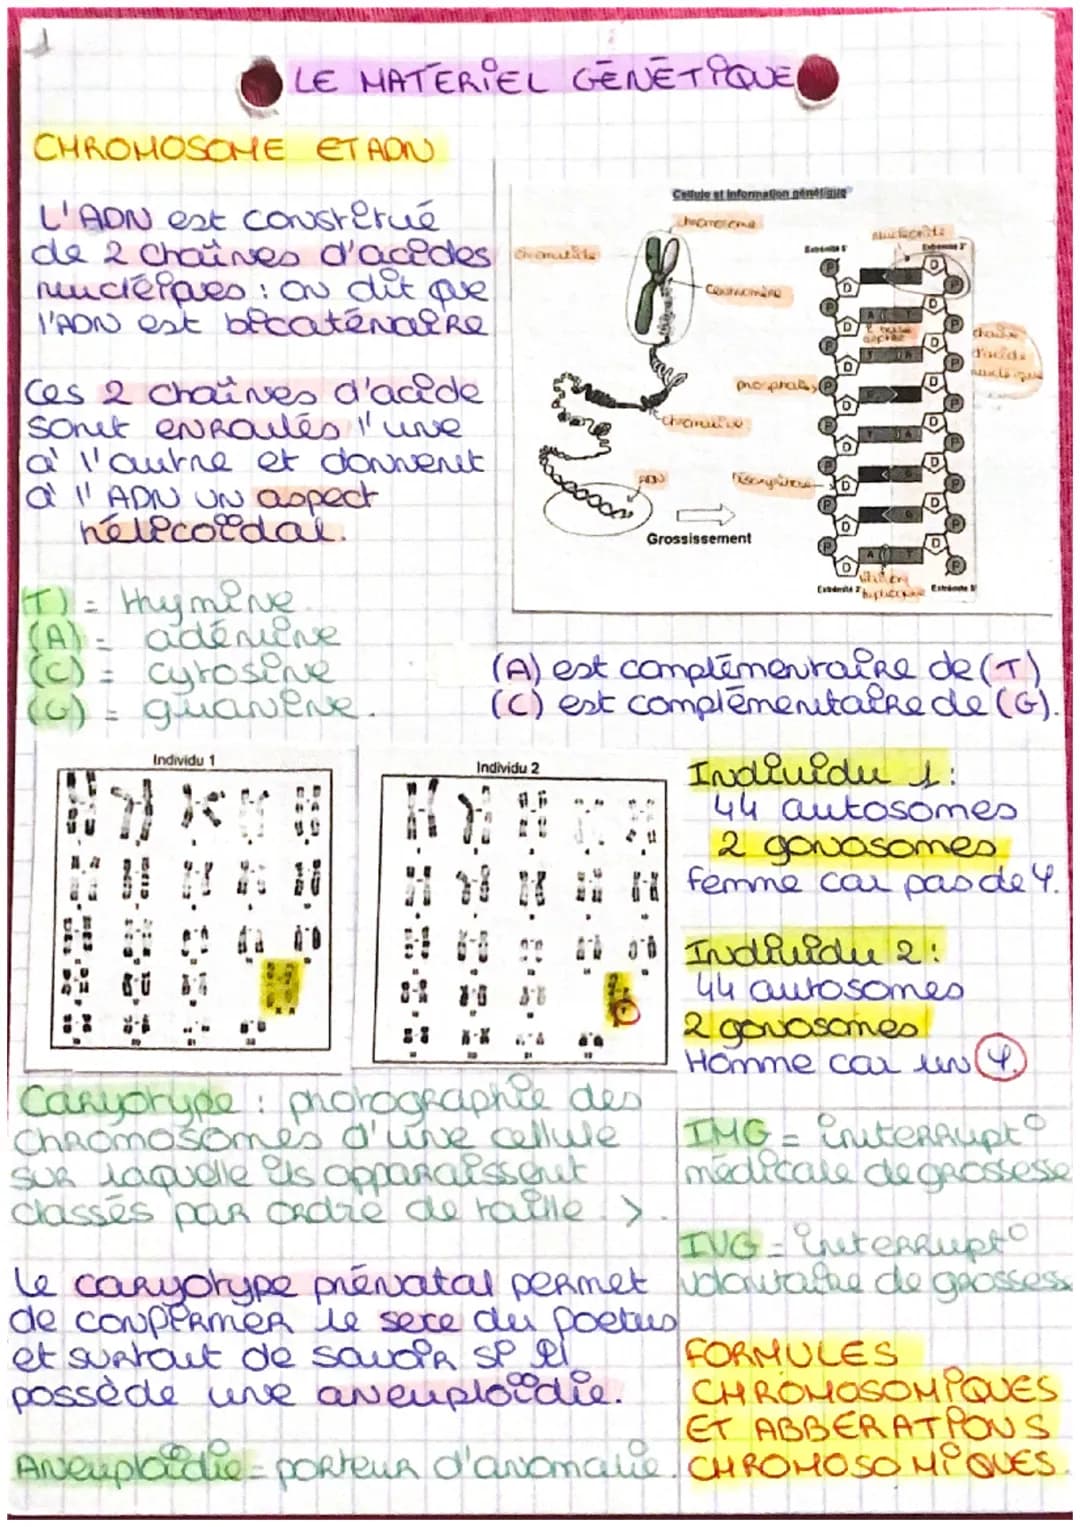 LE MATERIEL GÉNÉTIQUE
CHROMOSOME ET ADN
L'ADN est constitué
de 2 chaînes d'acides
nucléiques : on dit que
l'ADN est bicaténaire
Ces 2 chaînes d'acide
sont enroulés l'une
à l'autre et donnent
à l'ADN un aspect
hélicoïdal.
Cellule et information génétique
chromosome
chromatide
Centromère
chromatine
ADN
Grossissement
nucléotide
Extrémité 5'
Extrémité 3'
phosphate
Désoxyribose
chaîne
d'acide
nucléique
Extrémité 3'
Extrémité 5'
(T) = thymine
(A) = adénine
(C) = cytosine
(G) = guanine.
(A) est complémentaire de (T)
(C) est complémentaire de (G).
Individu 1
Individu 2
Individu 1 :
44 autosomes
2 gonosomes
femme car pas de Y.
Individu 2 :
44 autosomes
2 gonosomes
Homme car un Y.
Caryotype : photographie des
chromosomes d'une cellule
sur laquelle ils apparaissent
classés par ordre de taille >.
IMG = interrupt°
médicale de grossesse
IVG = interrupt°
volontaire de grossesse
Le caryotype prénatal permet
de confirmer le sexe du foetus
et surtout de savoir si il
possède une aneuploïdie.
Aneuploïdie = porteur d'anomalie.
FORMULES
CHROMOSOMIQUES
ET ABBERATIONS
CHROMOSOMIQUES